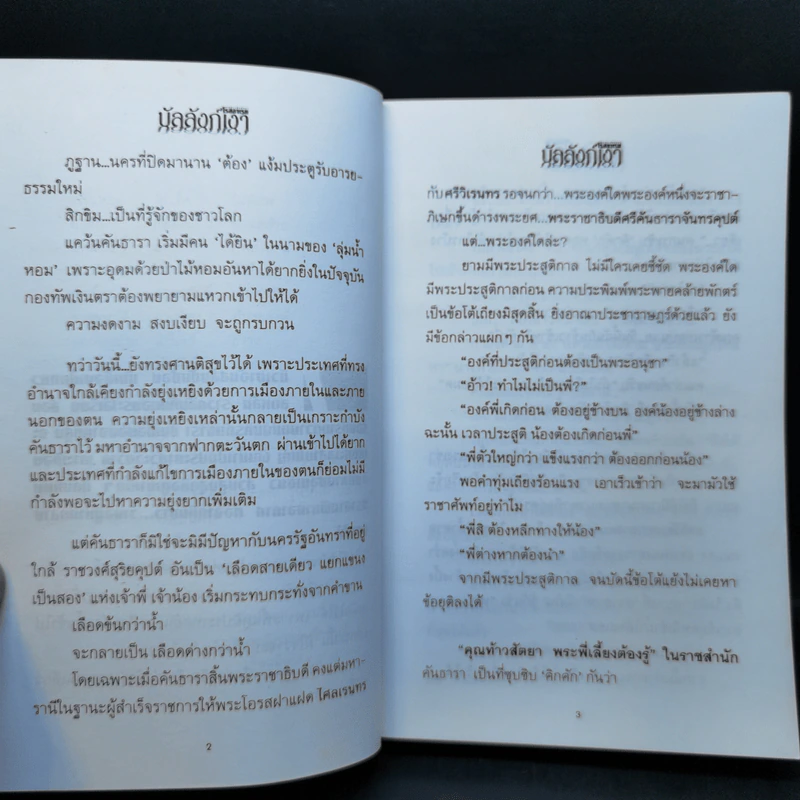 บัลลังก์เงา
ภูฐาน...นครที่ปิดมานาน 'ต้อง' แง้มประตูรับอารย-
ธรรมใหม่
สิกขิม...เป็นที่รู้จักของชาวโลก
แคว้นคันธารา เริ่มมีคน 'ได้ยิน' ในนามของ 'ลุ่มน้ำ
หอม' เพราะอุดมด้วยป่าไม้หอมอันหาได้ยากยิ่งในปัจจุบัน
กองทัพเงินตราต้องพยายามแหวกเข้าไปให้ได้
ความงดงาม สงบเงียบ จะถูกรบกวน
ทว่าวันนี้...ยังทรงศานติสุขไว้ได้ เพราะประเทศที่ทรง
อำนาจใกล้เคียงกำลังยุ่งเหยิงด้วยการเมืองภายในและภาย
นอกของตน ความยุ่งเหยิงเหล่านั้นกลายเป็นเกราะกำบัง
คันธาราไว้ มหาอำนาจจากฟากตะวันตก ผ่านเข้าไปได้ยาก
และประเทศที่กำลังแก้ไขการเมืองภายในของตนก็ย่อมไม่มี
กำลังพอจะไปหาความยุ่งยากเพิ่มเติม
แต่คันธาราก็มิใช่จะมิมีปัญหากับนครรัฐอันทราที่อยู่
ใกล้ ราชวงศ์สุริยคุปต์ อันเป็น 'เลือดสายเดียว แยกแขนง
เป็นสอง' แห่งเจ้าพี่ เจ้าน้อง เริ่มกระทบกระทั่งจากคำขาน
เลือดข้นกว่าน้ำ
จะกลายเป็น เลือดต่างกว่าน้ำ
โดยเฉพาะเมื่อคันธาราสิ้นพระราชาธิบดี คงแต่มหา-
รานีในฐานะผู้สำเร็จราชการให้พระโอรสฝาแฝด ไศลเรนทร
2
บัลลังก์เงา
กับศรีวิเรนทร รอจนกว่า...พระองค์ใดพระองค์หนึ่งจะราชา-
ภิเษกขึ้นดำรงพระยศ...พระราชาธิบดีศรีคันธาราจันทรคุปต์
แต่...พระองค์ใดล่ะ?
ยามมีพระประสูติกาล ไม่มีใครเคยชี้ชัด พระองค์ใด
มีพระประสูติกาลก่อน ความประพิมพ์ประพายคล้ายพักตร์
เป็นข้อโต้เถียงมิสุดสิ้น ยิ่งอาณาประชาราษฎร์ด้วยแล้ว ยัง
มีข้อกล่าวแผกๆ กัน
"องค์ที่ประสูติก่อนต้องเป็นพระอนุชา"
"อ้าว! ทำไมไม่เป็นพี่?"
"องค์พี่เกิดก่อน ต้องอยู่ข้างบน องค์น้องอยู่ข้างล่าง
ฉะนั้น เวลาประสูติ น้องต้องเกิดก่อนพี่"
"พี่ตัวใหญ่กว่า แข็งแรงกว่า ต้องออกก่อนน้อง"
พอคำทุ่มเถียงร้อนแรง เอาเร็วเข้าว่า จะมามัวใช้
ราชาศัพท์อยู่ทำไม
"พี่สิ ต้องหลีกทางให้น้อง"
"พี่ต่างหากต้องนำ"
จากมีพระประสูติกาล จนบัดนี้ข้อโต้แย้งไม่เคยหา
ข้อยุติลงได้
"คุณท้าวสัตยา พระพี่เลี้ยงต้องรู้" ในราชสำนัก
คันธารา เป็นที่ซุบซิบ 'คิกคัก' กันว่า
3